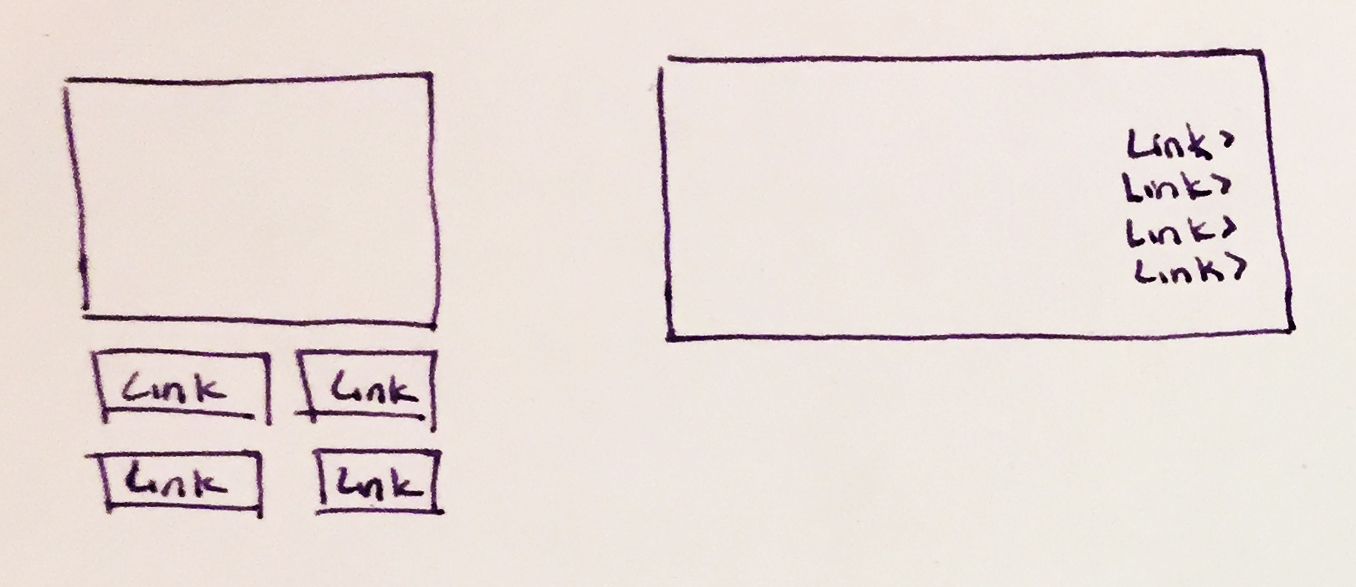 Link Link
Link Link
Link >
Link >
Link >
Link >